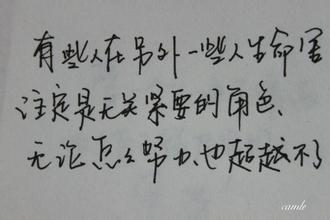 有些人在另外一些人生命里
注定是无关紧要的角色、
无论怎么努力、也超越不了
camle